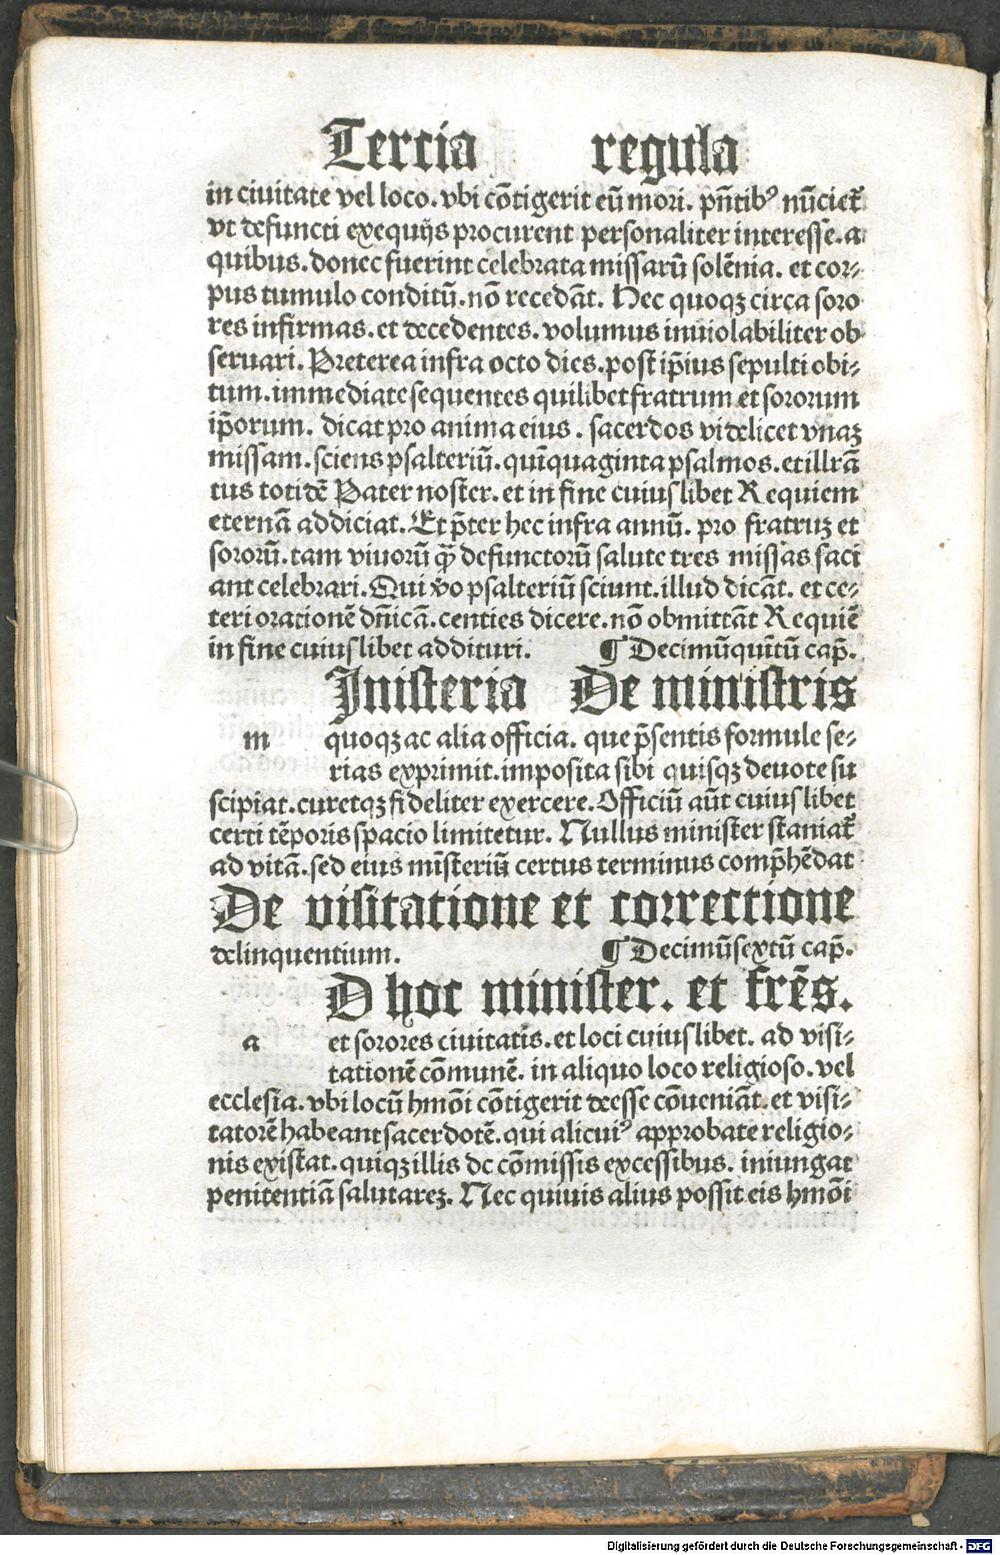 Tercia regula
in ciuitate vel loco. vbi cõtigerit eũ mori. pñtibꝰ nũcietᷣ
vt defuncti exequijs procurent personaliter interesse. a
quibus. donec fuerint celebrata missarũ solẽnia. et cor-
pus tumulo conditũ. nõ recedãt. Hec quoqꝫ circa soro
res infirmas. et decedentes. volumus inuiolabiliter ob
seruari. Preterea infra octo dies. post ip̃ius sepulti obi-
tum. immediate sequentes quilibet fratrum et sororum
ip̃orum. dicat pro anima eius. sacerdos videlicet vnaꝫ
missam. sciens psalteriũ. quĩquaginta psalmos. et illrã
tus totidẽ Pater noster. et in fine cuiuslibet Requiem
eternã addiciat. Et p̃ter hec infra annũ. pro fratruꝫ et
sororũ. tam viuorũ q̃ defunctorũ salute tres missas faci
ant celebrari. Qui ṽo psalteriũ sciunt. illud dicãt. et ce-
teri orationẽ dñicã. centies dicere. nõ obmittãt Requiẽ
in fine cuiuslibet addituri. ¶ Decimũquĩtũ cap̃.
Inisteria De ministris
m quoqꝫ ac alia officia. que p̃sentis formule se-
rias exprimit. imposita sibi quisqꝫ deuote su
scipiat. curetqꝫ fideliter exercere. Officiũ aũt cuiuslibet
certi tẽporis spacio limitetur. Nullus minister staniatᷣ
ad vitã. sed eius mĩsteriũ certus terminus comp̃hẽdat
De visitatione et correctione
delinquentium. ¶ Decimũsextũ cap̃.
D hoc minister. et frẽs.
a et sorores ciuitatis. et loci cuiuslibet. ad visi-
tationẽ cõmunẽ. in aliquo loco religioso. vel
ecclesia. vbi locũ hmõi cõtigerit deesse cõueniãt. et visi-
tatorẽ habeant sacerdotẽ. qui alicuiꝰ approbate religio-
nis existat. quiqꝫ illis dc cõmissis excessibus. iniungat
penitentiã salutareꝫ. Nec quiuis alius possit eis hmõi
Digitalisierung gefördert durch die Deutsche Forschungsgemeinschaft - DFG